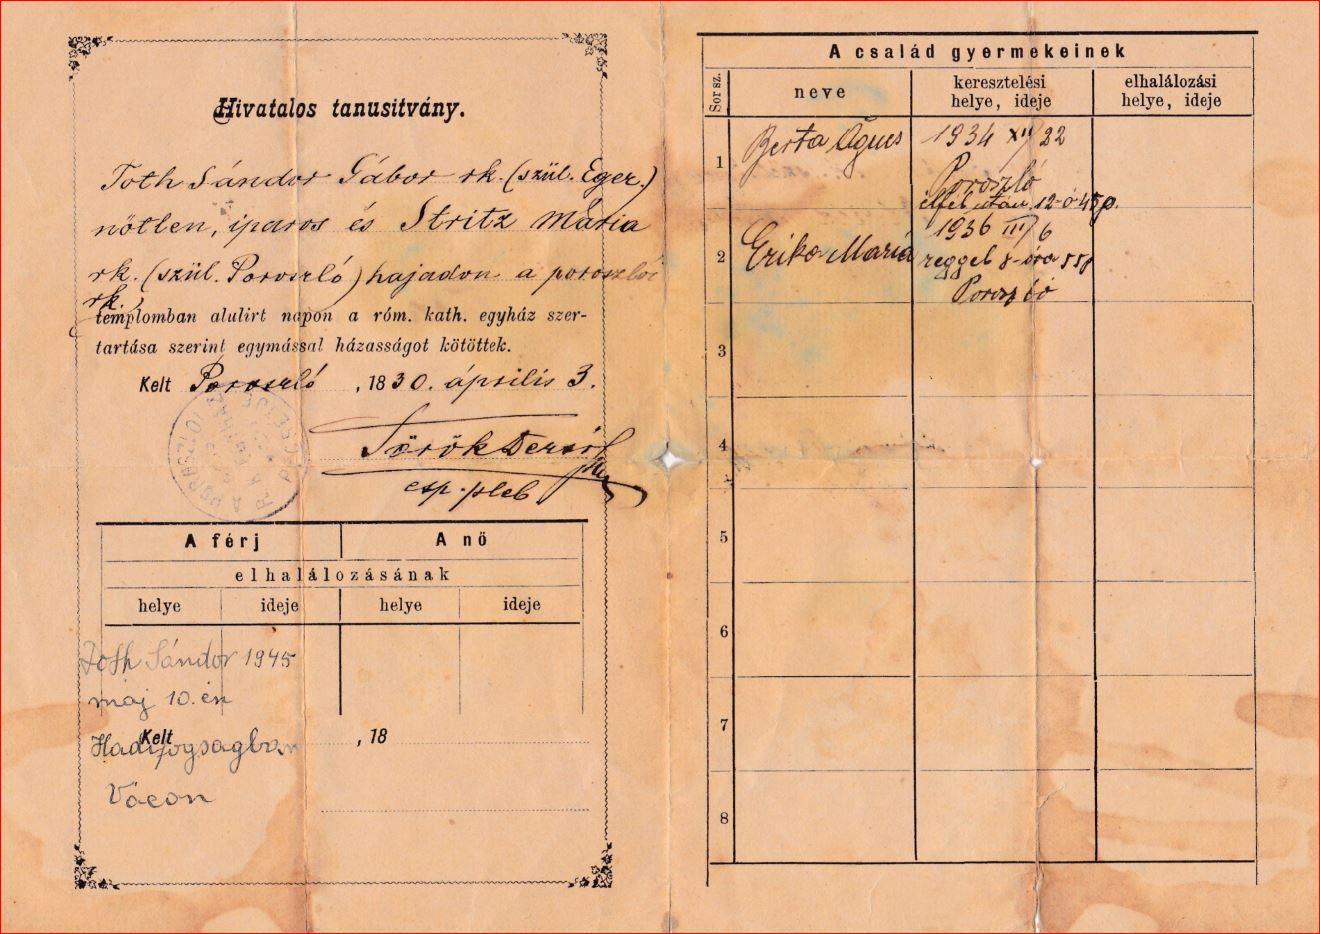 Hivatalos tanusitvány.
Toth Sándor Gábor rk. (szül. Eger.)
nőtlen, iparos és Stritz Mária
rk. (szül. Poroszló) hajadon a poroszlói
rk.
templomban alulirt napon a róm. kath. egyház szer-
tartása szerint egymással házasságot kötöttek.
Kelt Poroszló, 1830. április 3.
Török Dezső
esp. pleb
A férj A nő
elhalálozásának
helye ideje helye ideje
Toth Sándor 1945
máj 10. én
Kelt , 18
Hadifogsagban
Vácon
A család gyermekeinek
Sor sz. neve keresztelési helye, ideje elhalálozási helye, ideje
1 Berta Ágnes 1934 XII/22
Poroszló
délután 12-ó 45p.
2 Erika Mariá 1936 III/6
reggel 8-óra 55p
Poroszló
3
4
5
6
7
8